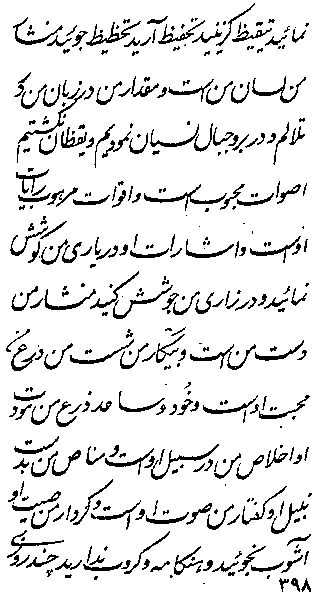 نمائید تیقیظ گزینید تحفیظ آرید تحظیظ جوئید منشا
من لسان من است و مقدار من در زبان من کو
تلالم و در بر و جبال نسیان نمودیم و یقظان نگشتیم
اصوات محبوب است و اقوات مرهوب رایات
او است و اشارات او در یاری من کوشش
نمائید و در زاری من جوشش کنید منشار من
دست من است و پیکار من شست من درع من
محبت او است و خُود و ساعد ذرع من مودت
او اخلاص من در سبیل او است و مناص من بدست
نبیل او گفتار من صوت او است و کردار من صیت او
آشوب نجوئید و هنگامه و کروب ندارید چند روزی
۳۹۸